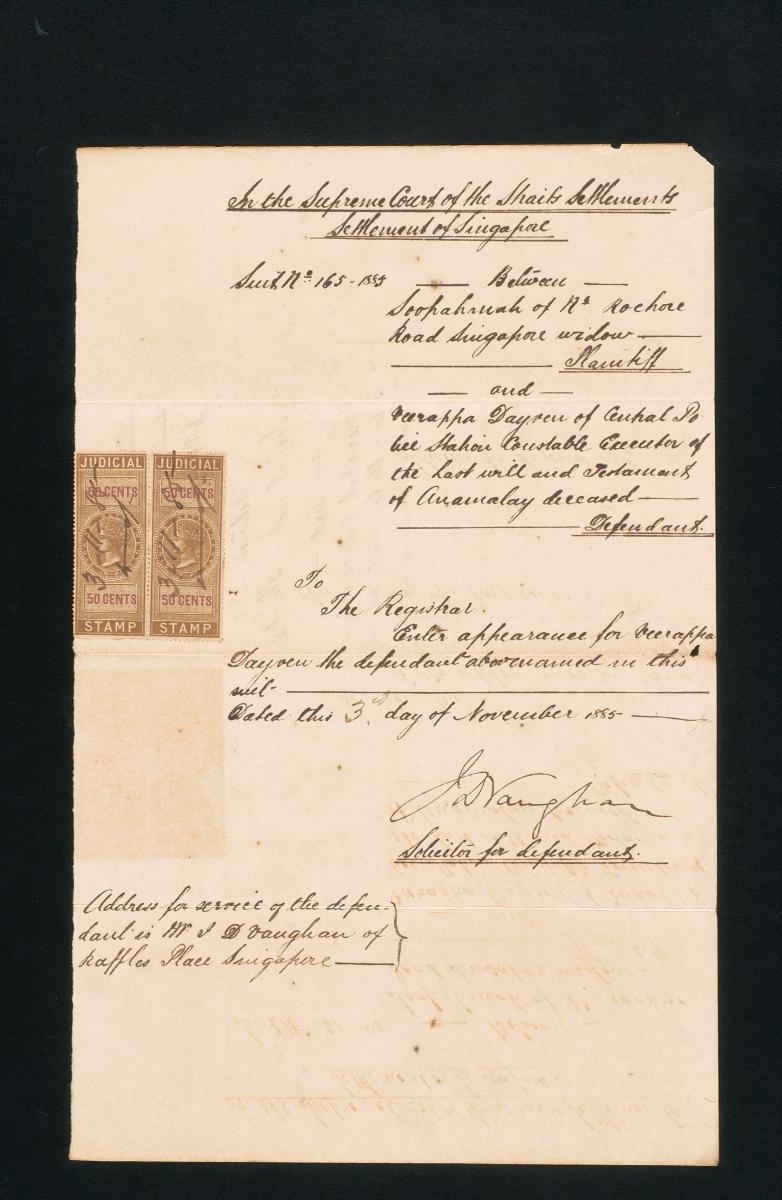 In the Supreme Court of the Straits Settlements
Settlement of Singapore
Suit No. 165 - 1885
Between
Soopahmah of No. Rochore
Road Singapore widow
Plaintiff
and
Veerappa Dayven of Central Po
lice Station Constable Executor of
the Last will and Testament
of Anamalay deceased
Defendant.
JUDICIAL
50 CENTS
50 CENTS
STAMP
3-11-85
JUDICIAL
50 CENTS
50 CENTS
STAMP
3-11-85
To
The Registrar.
Enter appearance for Veerappa
Dayven the defendant abovenamed in this
suit
Dated this 3rd day of November 1885
J D Vaughan
Solicitor for defendant.
Address for service of the defen-
dant is Mr J D Vaughan of
Raffles Place Singapore